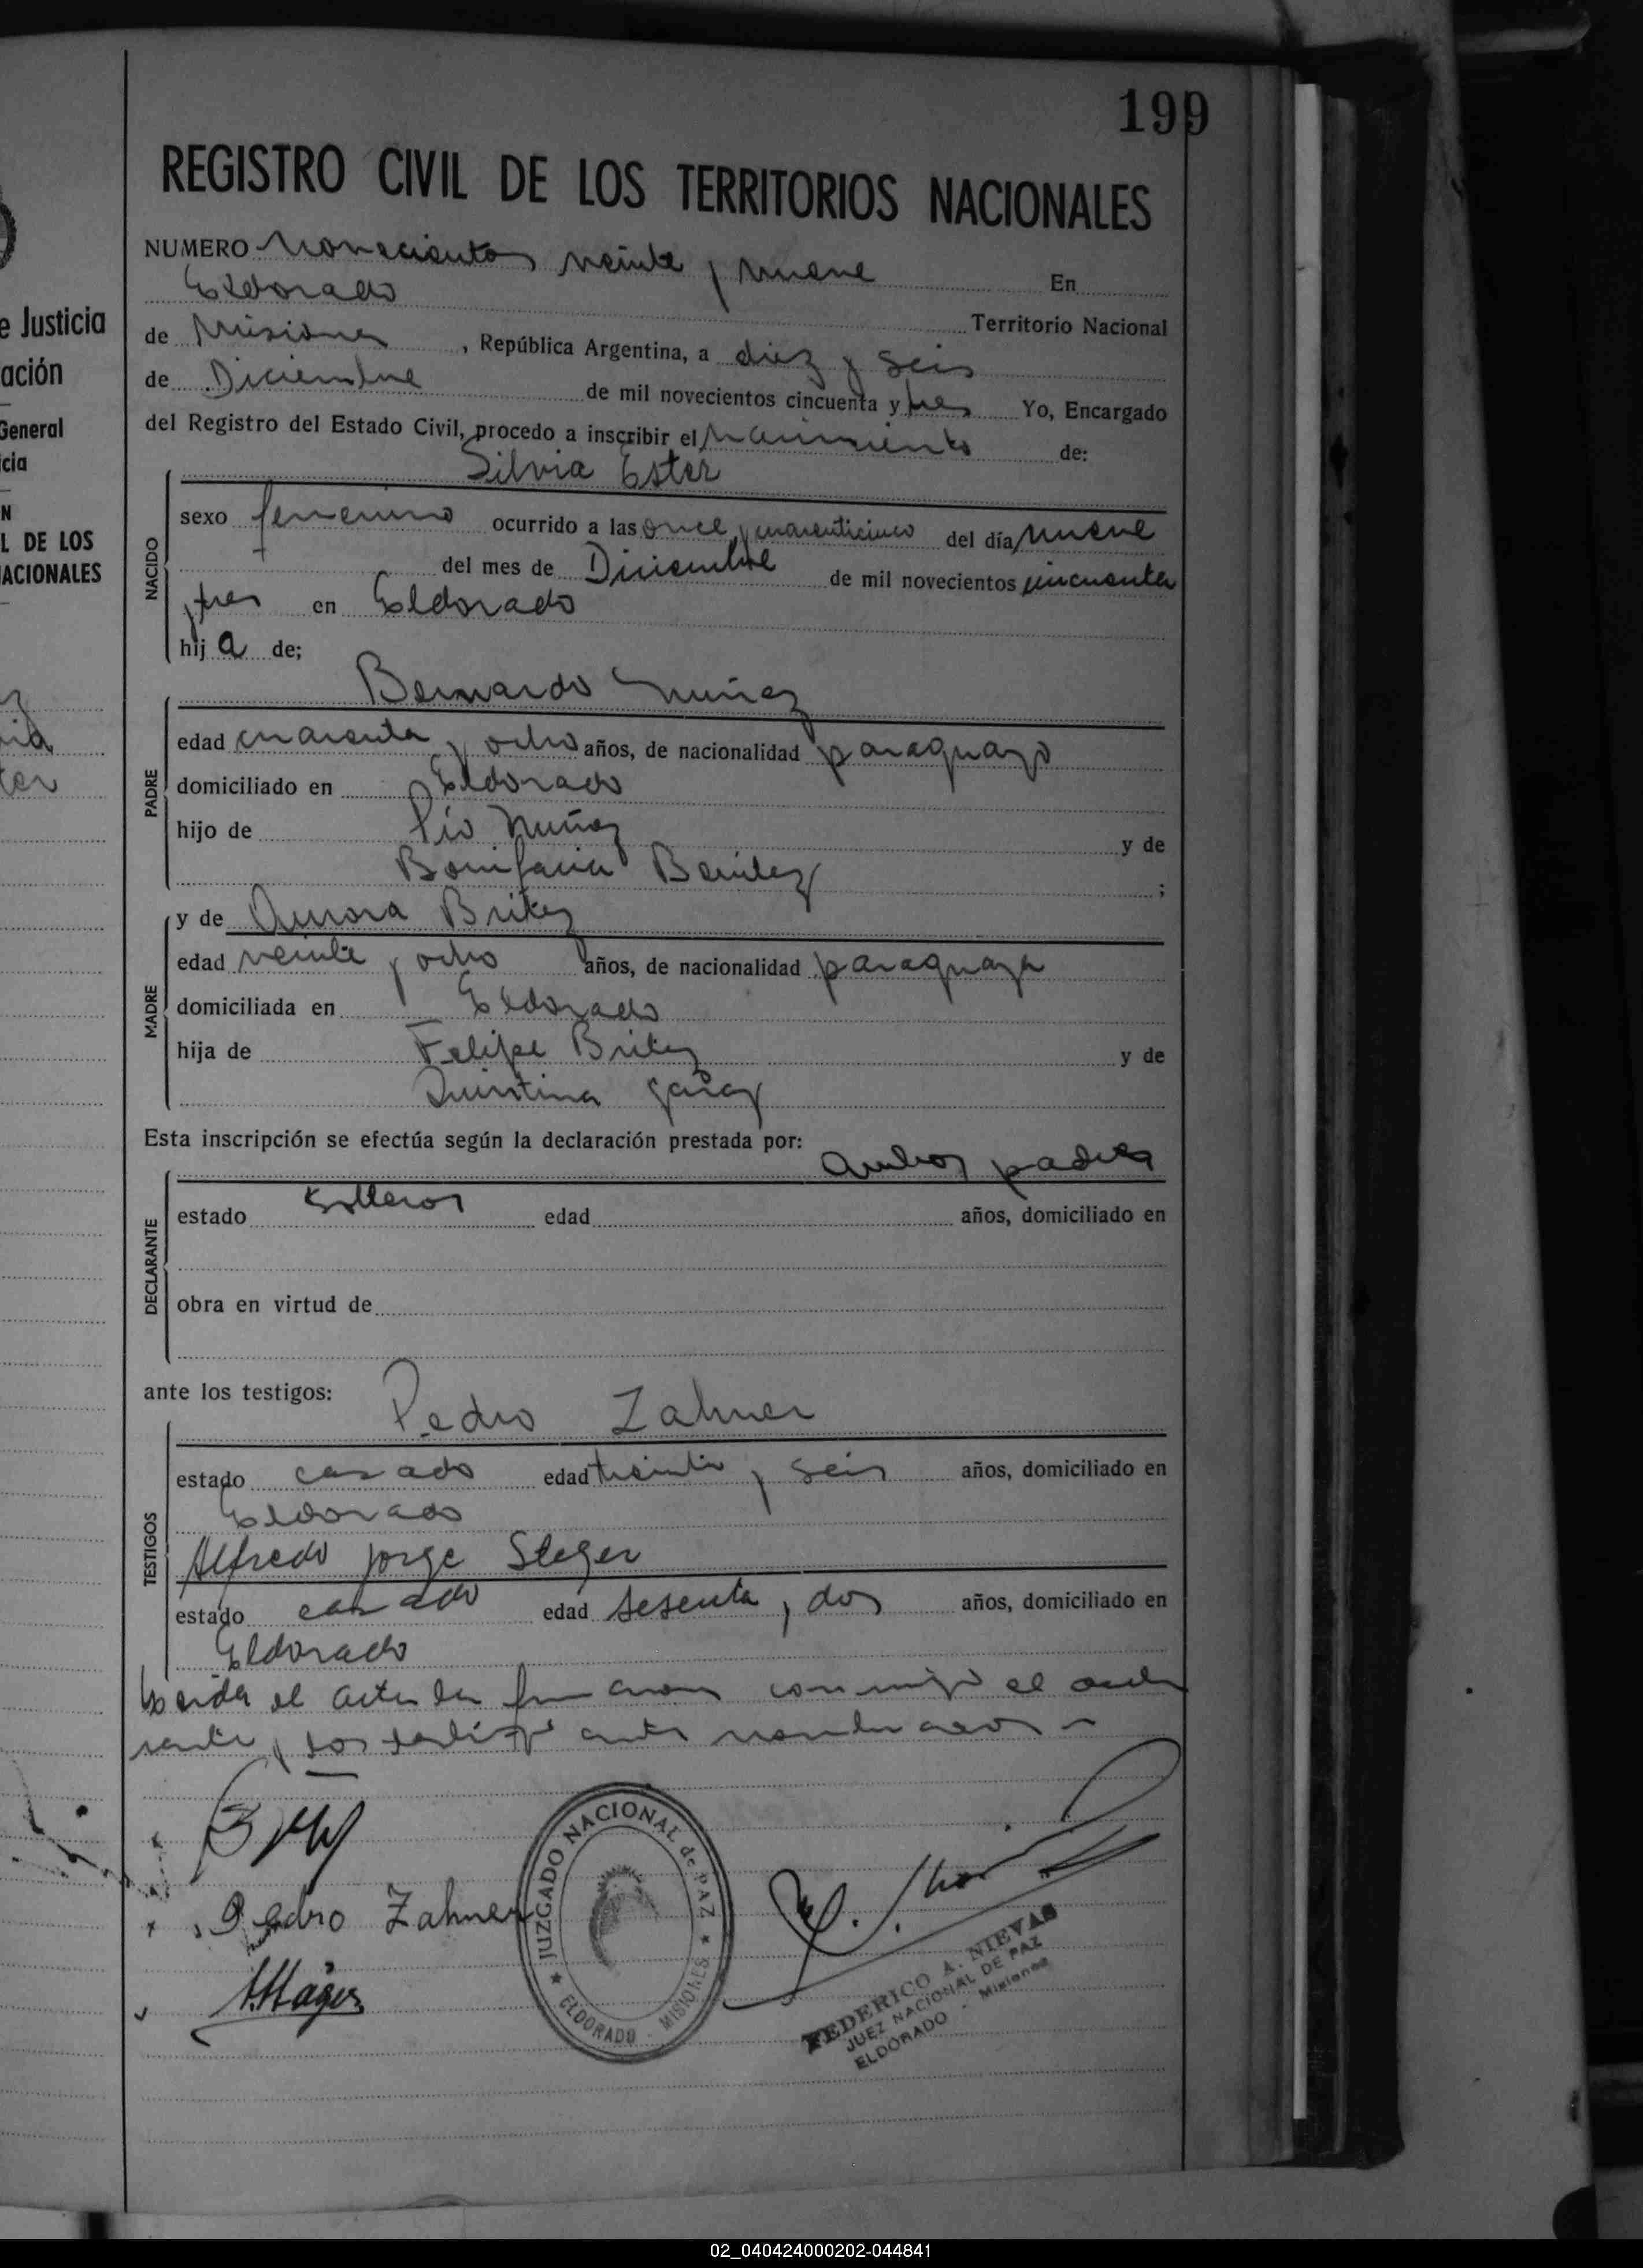 199
REGISTRO CIVIL DE LOS TERRITORIOS NACIONALES
NUMERO Novecientos veinte y nueve En
Eldorado Territorio Nacional
de Misiones, República Argentina, a diez y seis
de Diciembre de mil novecientos cincuenta y tres Yo, Encargado
del Registro del Estado Civil, procedo a inscribir el Nacimiento de:
Silvia Ester
NACIDO
sexo femenino ocurrido a las once y cuarenticinco del día nueve
del mes de Diciembre de mil novecientos cincuenta
y tres en Eldorado
hija de;
Bernardo Nuñez
PADRE
edad cuarenta y ocho años, de nacionalidad paraguayo
domiciliado en Eldorado
hijo de Pío Nuñez y de
Bonifacia Benitez ;
y de Aurora Britez
MADRE
edad veinte y ocho años, de nacionalidad paraguaya
domiciliada en Eldorado
hija de Felipe Britez y de
Quintina
Esta inscripción se efectúa según la declaración prestada por: Ambos padres
DECLARANTE
estado solteros edad años, domiciliado en
obra en virtud de
ante los testigos: Pedro Zahner
TESTIGOS
estado casado edad treinta y seis años, domiciliado en
Eldorado
Alfredo Jorge Steger
estado casado edad sesenta y dos años, domiciliado en
Eldorado
Leida el acta la firmaron conmigo el decla
rante y los testigos antes nombrados
Pedro Zahner
JUZGADO NACIONAL de PAZ
ELDORADO - MISIONES
FEDERICO A. NIEVAS
JUEZ NACIONAL DE PAZ
ELDORADO - Misiones
e Justicia
ación
General
cia
N
L DE LOS
ACIONALES
02_040424000202-044841